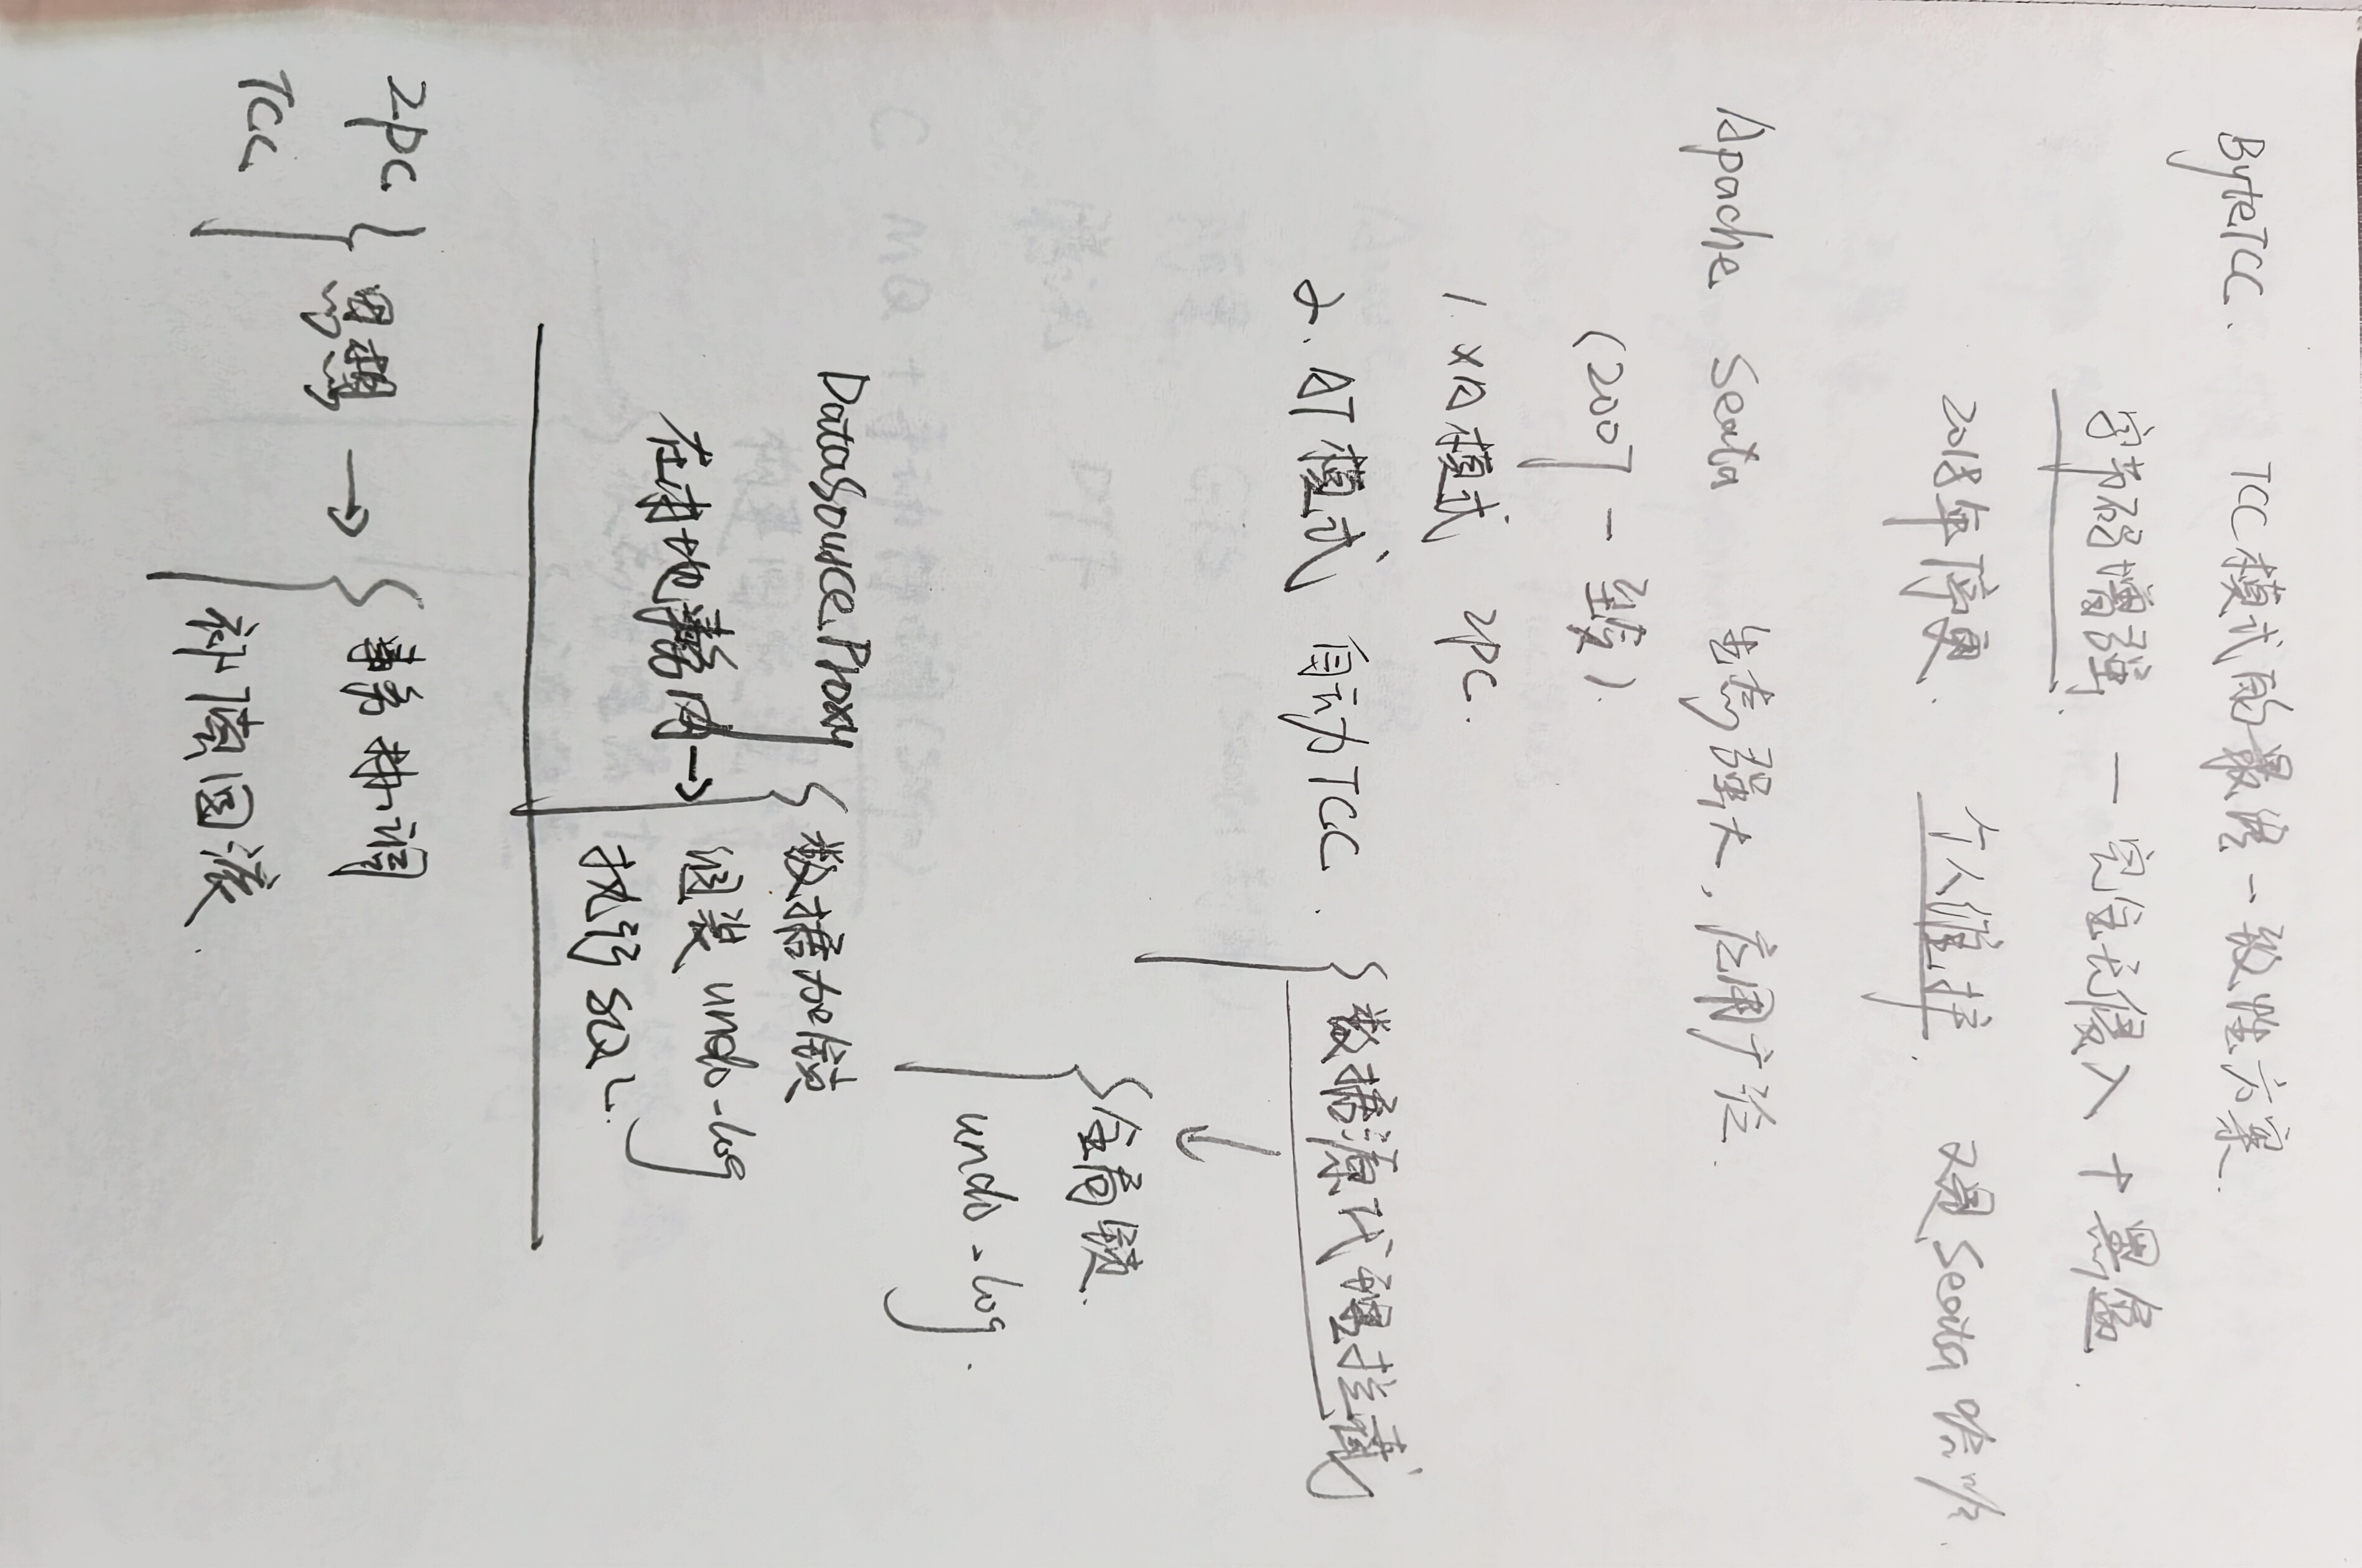 ByteTCC. TCC模式的最终一致性方案.
字节码增强. — 完全无侵入 + 黑盒.
2018年停更. 个人维护. 又是Seata 哈哈.
Apache Seata 生态强大, 应用广泛.
(2007 - 至今).
1. XA模式 2PC.
2. AT模式 自动TCC. { 数据源代理拦截
↓
{ 全局锁.
undo-log.
DataSource Proxy { 数据加锁
组装 undo-log
在本地事务内 →
执行 SQL.
2PC
} 思想 → { 事务协调
TCC
补偿回滚.